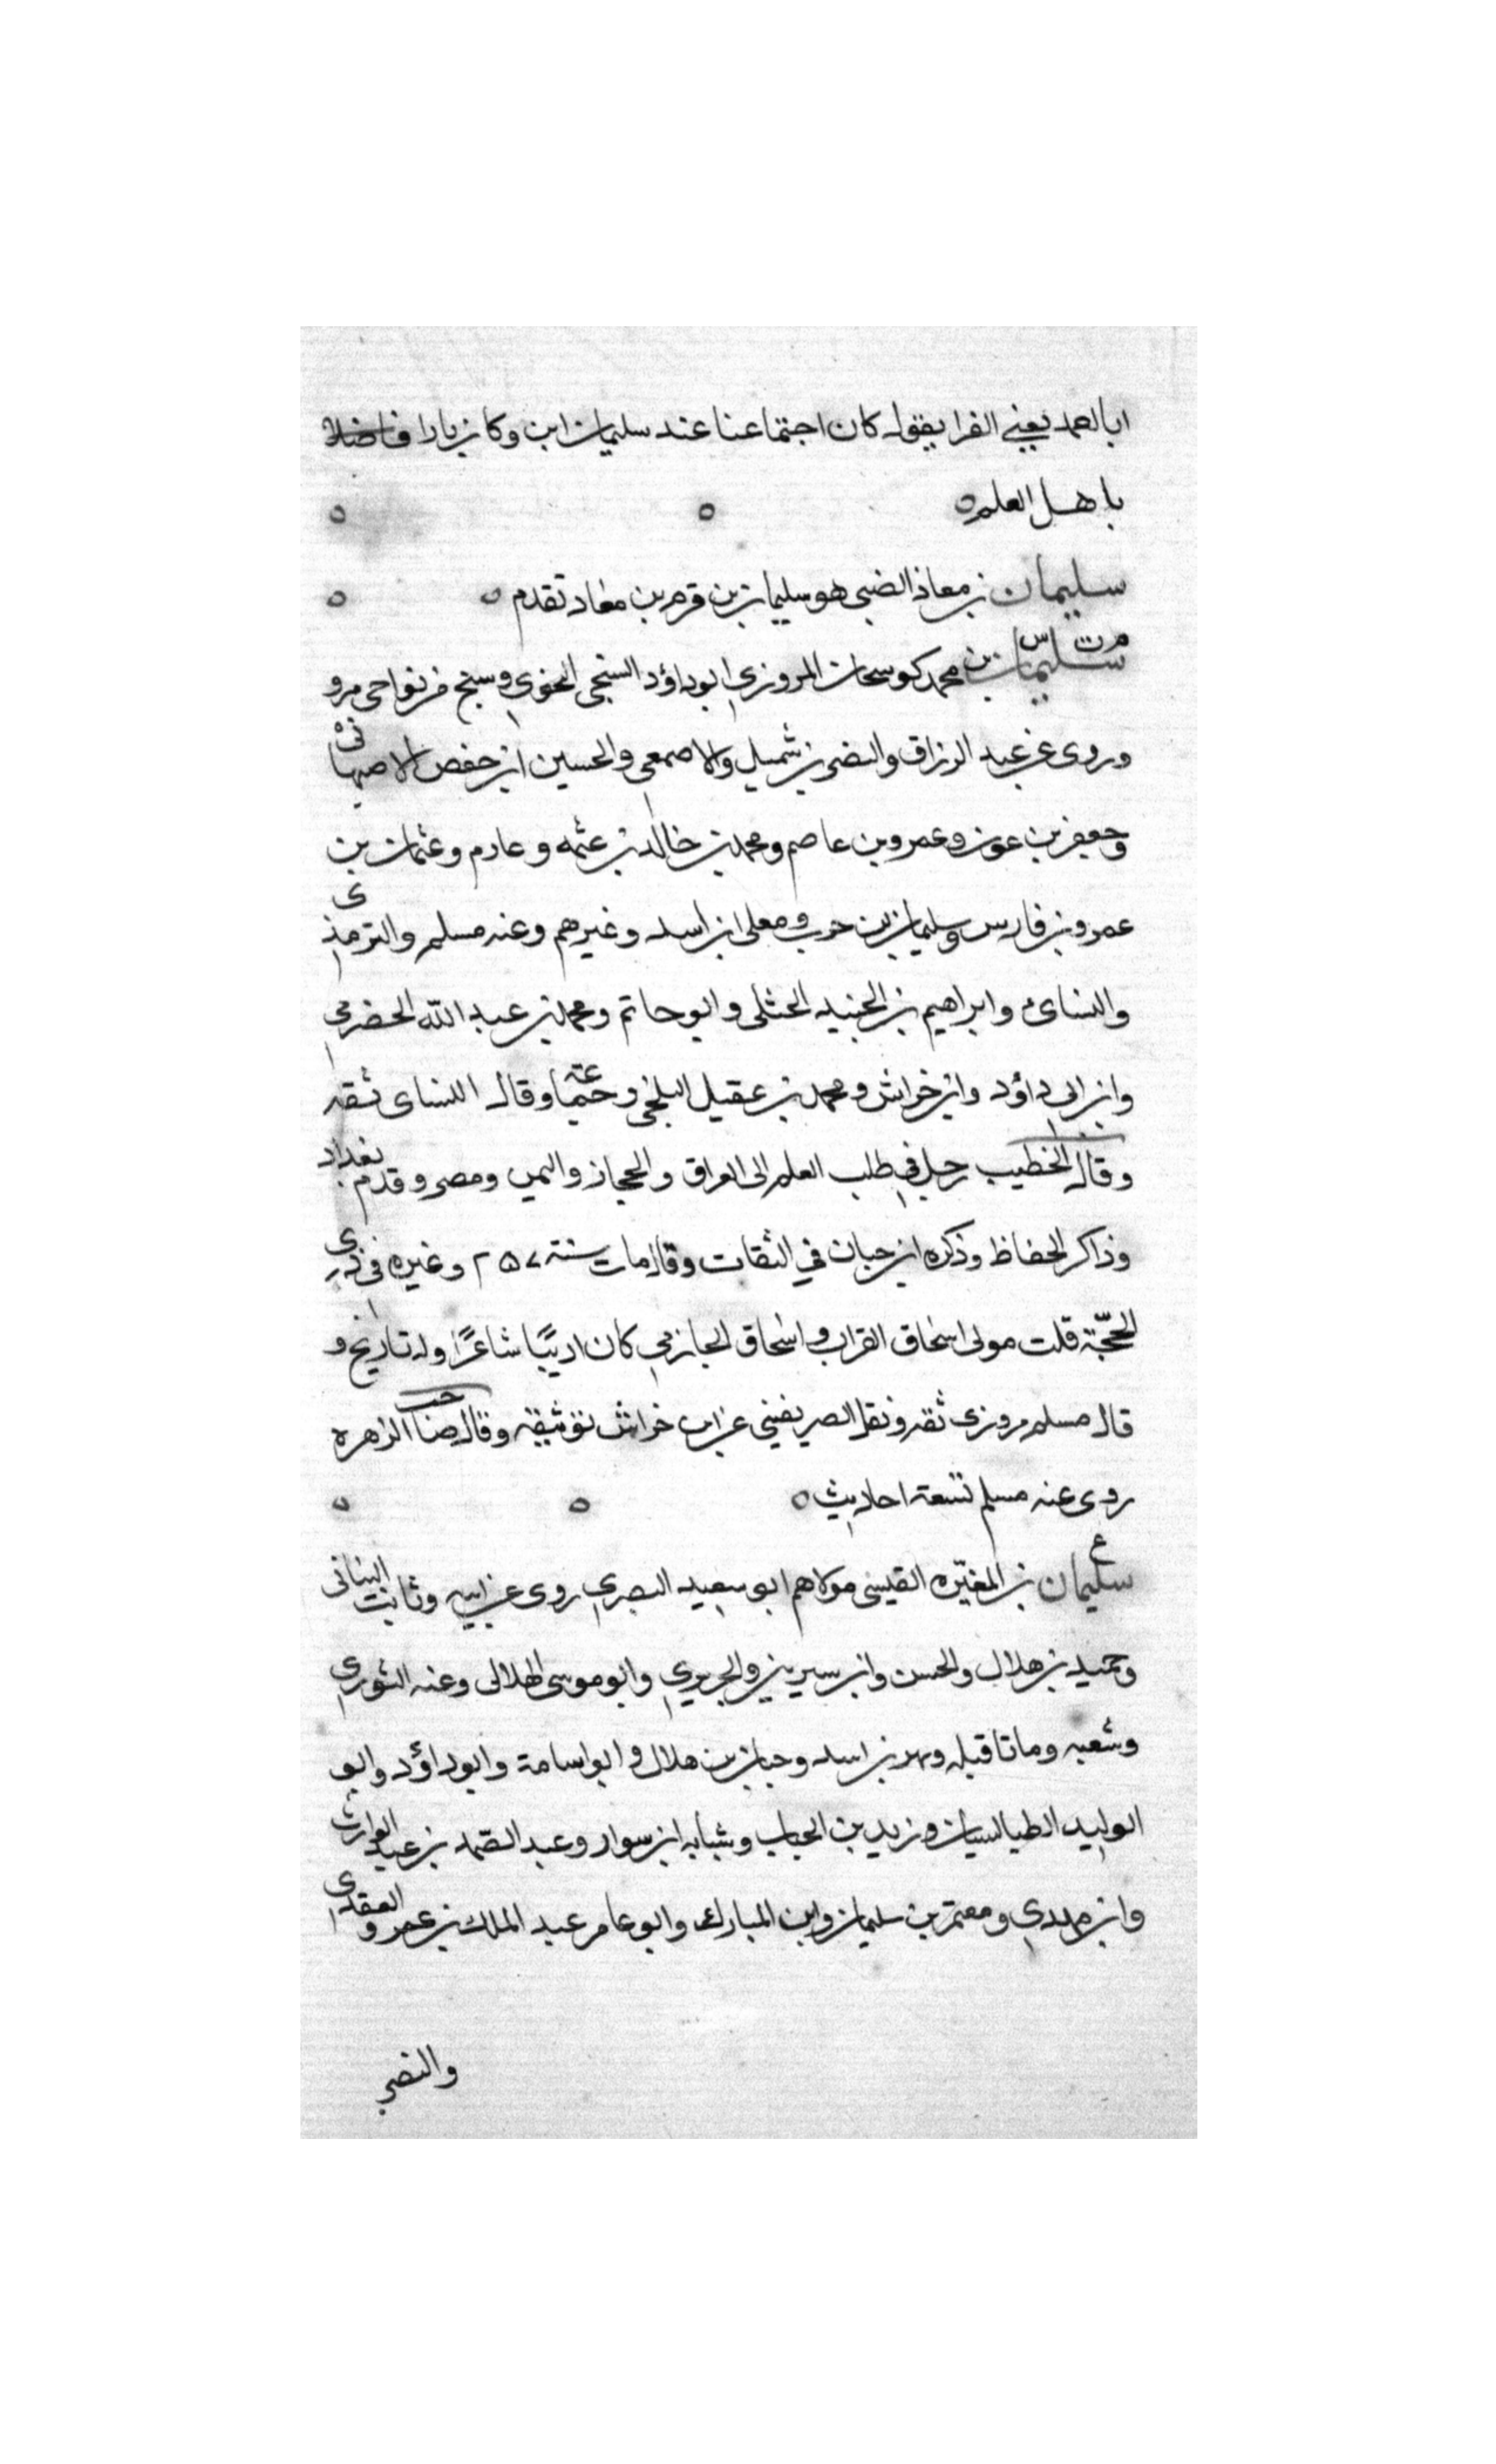 ابا احمد يعني الفرا يقول كان اجتماعنا عند سليمان ابن وكان بارا فاضلا
باهل العلم
سليمان بن معاذ الضبي هو سليمان بن قرم بن معاذ تقدم
م ت س
سليمان بن محمد كوسجان المروزي ابو داؤد السنجي النحوي وسنج من نواحي مرو
وروى عن عبد الرزاق والنضر بن شميل والاصمعي والحسين ابن حفص الاصبهاني
وجعفر بن عون وعمرو بن عاصم ومحمد بن خالد بن عثمه وعارم وعثمان بن
عمرو بن فارس وسليمان بن حرب ومعلى ابن اسد وغيرهم وعنه مسلم والترمذي
والنسائ وابراهيم بن الجنيد الختلى وابو حاتم ومحمد بن عبد الله الحضرمي
وابن ابي داؤد وابن خراش ومحمد بن عقيل البلخي وجماعة وقال النساى ثقه
وقال الخطيب رحل في طلب العلم الى العراق والحجاز واليمن ومصر وقدم بغداد
وذاكر الحفاظ وذكره ابن حبان في الثقات وقال مات سنة ٢٥٧ وغيره في ذي
الحجّة قلت مولى اسحاق القراب واسحاق الجازمي كان اديبًا شاعرًا وله تاريخ و
قال مسلم مروزى ثقه ونقل الصريفيني عن ابن خراش توثيقه وقال صاحب الزهره
روى عنه مسلم تسعة احاديث
ع
سليمان بن المغيّره القيسى مولاهم ابو سعيد البصري روى عن ابيه وثابت البناني
وحميد بن هلال والحسن وابن سيرين والجريري وابو موسى الهلالى وعنه الثوري
وشعبه وماتا قبله وبهز بن اسد وحبان بن هلال وابو اسامة وابو داؤد وابو
الوليد الطيالسيان وزيد بن الحباب وشبابه ابن سوار وعبد الصّمد بن عبد الوارث
وابن مهدي ومعتمر بن سليمان وابن المبارك وابو عامر عبد الملك بن عمرو العقدي
والنضر